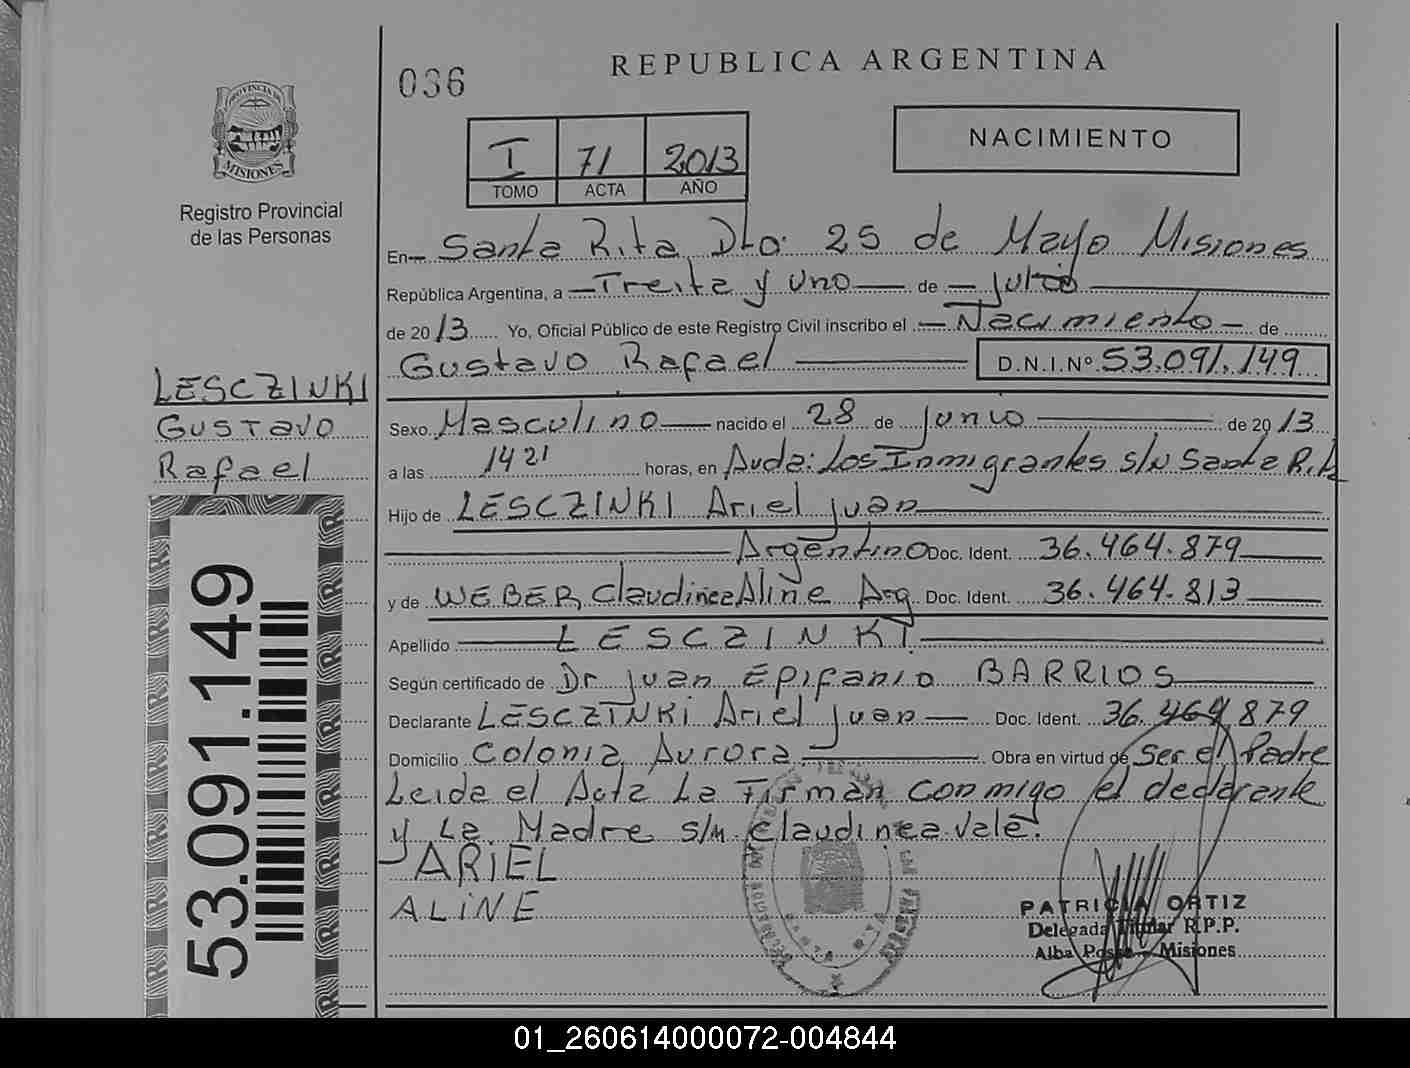 036
REPUBLICA ARGENTINA
NACIMIENTO
I 71 2013
TOMO ACTA AÑO
PROVINCIA DE
MISIONES
Registro Provincial
de las Personas
En Santa Rita Dto. 25 de Mayo Misiones
República Argentina, a Treita y uno de julio
de 2013 Yo, Oficial Público de este Registro Civil inscribo el Nacimiento de
Gustavo Rafael D.N.I.Nº 53.091.149
LESCZINKI
Gustavo
Rafael
Sexo Masculino nacido el 28 de junio de 2013
a las 1421 horas, en Avda: Los Inmigrantes s/N Santa Rita
Hijo de LESCZINKI Ariel juan
Argentino Doc. Ident. 36.464.879
y de WEBER, Claudinea Aline Arg Doc. Ident. 36.464.813
Apellido LESCZINKI
Según certificado de Dr juan Epifanio BARRIOS
Declarante LESCZINKi Ariel juan Doc. Ident. 36.464 879
Domicilio Colonia Aurora Obra en virtud de Ser el Padre
Leida el Acta La Firman conmigo el declarante
y La Madre s/m. Claudinea vale.
ARiEL
ALiNE
SANTA RITA
PATRICIA ORTIZ
Delegada Titular R.P.P.
Alba Posse - Misiones
53.091.149
01_260614000072-004844